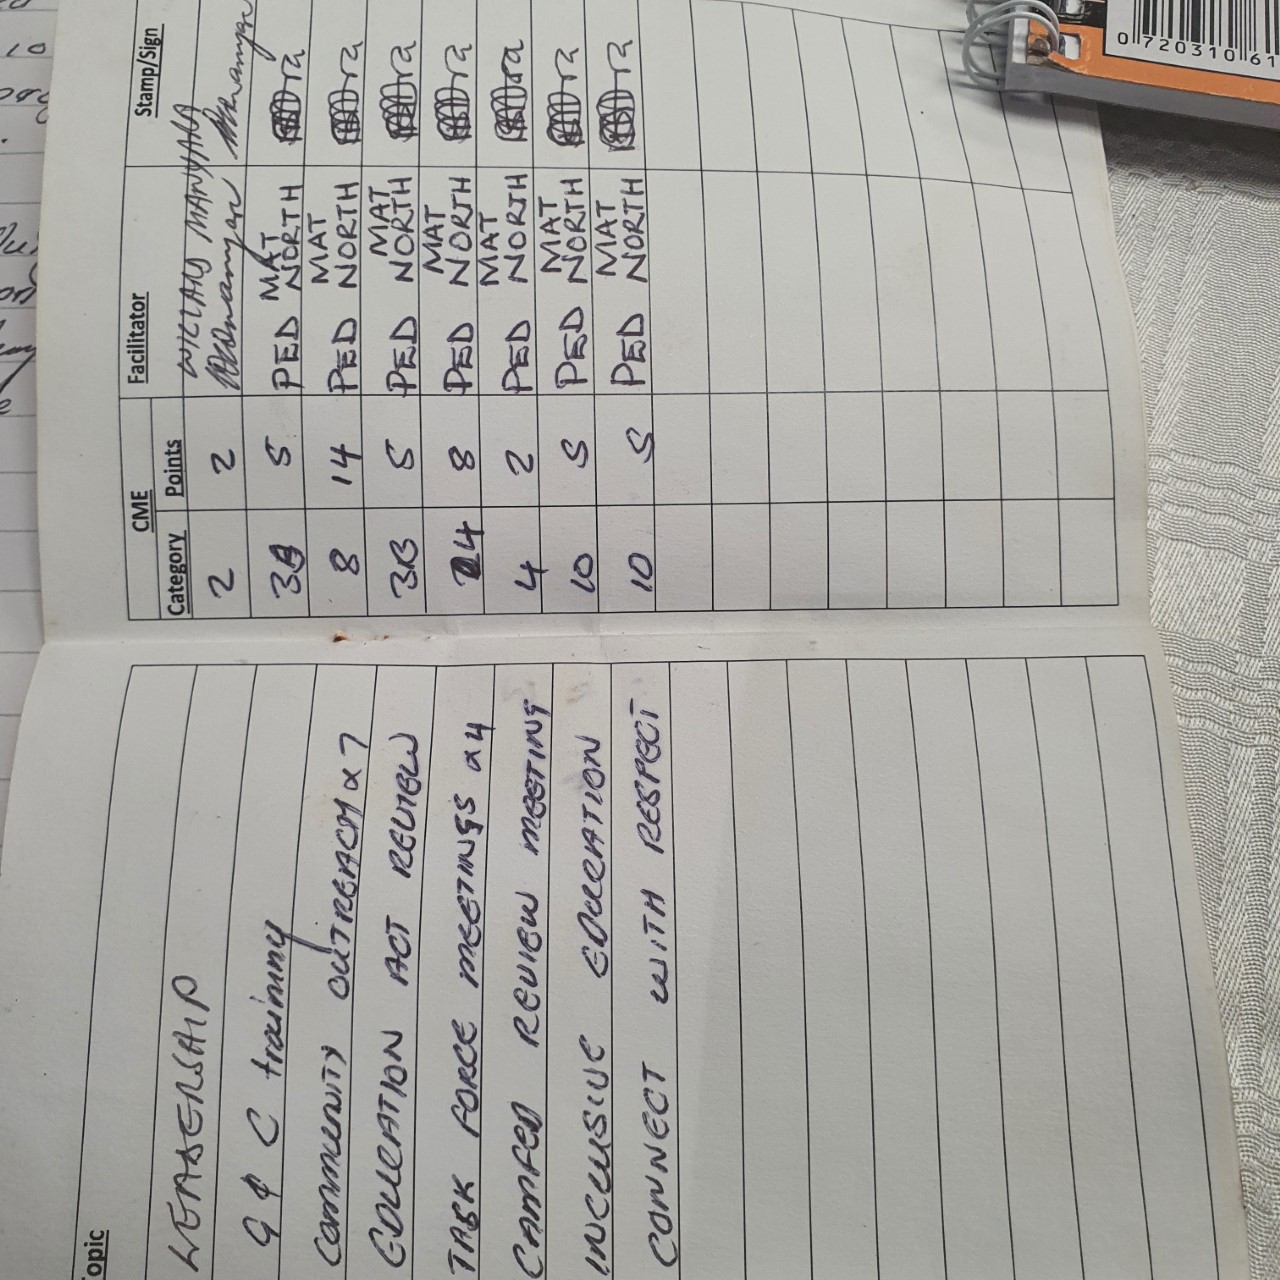 Topic CME Facilitator Stamp/Sign
Category Points
LEADERSHIP 2 2 WILLARD MANYARA
G & C training 3B 5 PED MAT NORTH
COMMUNITY OUTREACH x 7 8 14 PED MAT NORTH
EDUCATION ACT REVIEW 3B 5 PED MAT NORTH
TASK FORCE MEETINGS x 4 4 8 PED MAT NORTH
CAMFED REVIEW MEETING 4 2 PED MAT NORTH
INCLUSIVE EDUCATION 10 5 PED MAT NORTH
CONNECT WITH RESPECT 10 5 PED MAT NORTH
0 720310 61